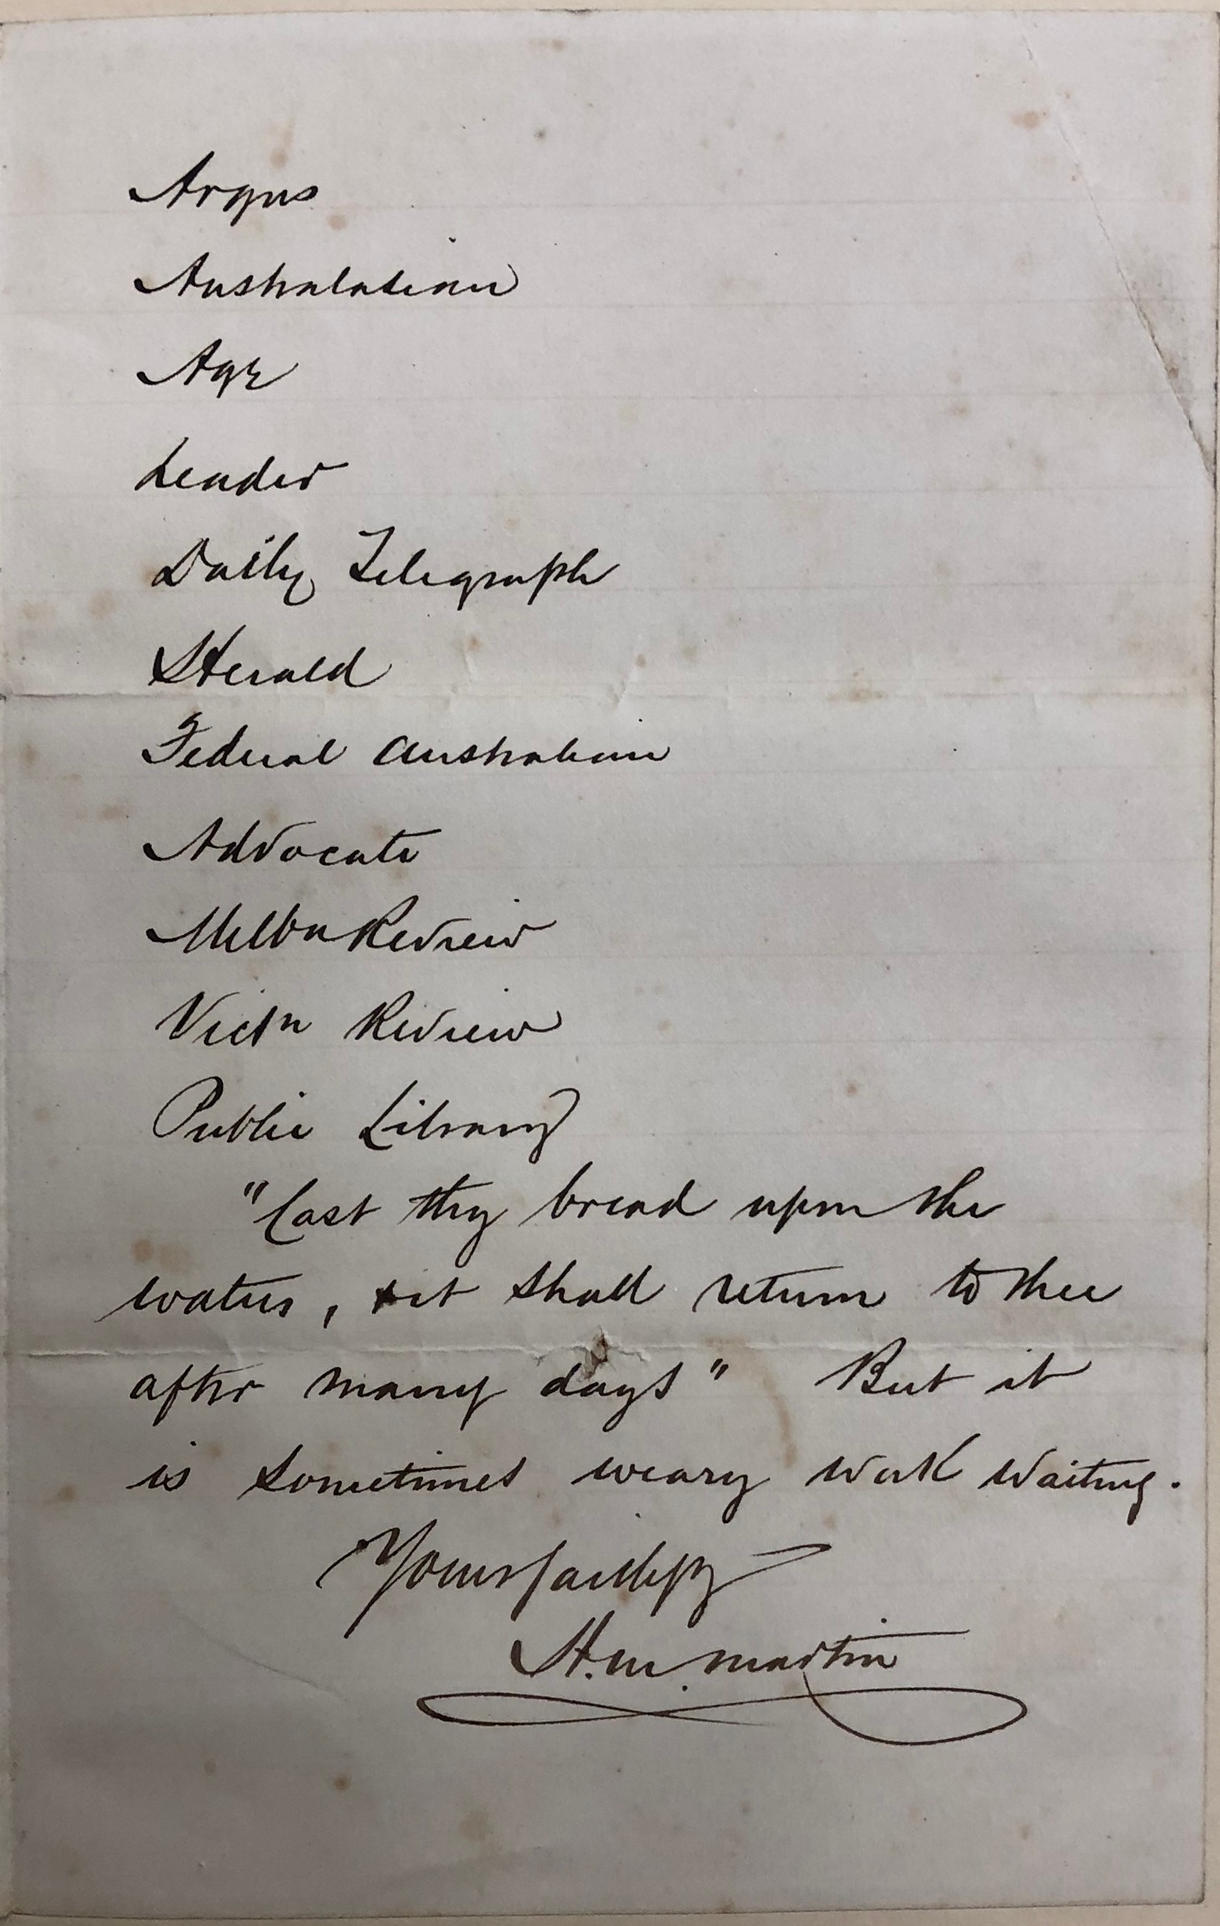 Argus
Australasian
Age
Leader
Daily Telegraph
Herald
Federal Australian
Advocate
Melbn Review
Victn Review
Public Library
"Cast thy bread upon the
waters, & it shall return to thee
after many days" But it
is sometimes weary work waiting.
Yours faithfly
H. W. Martin